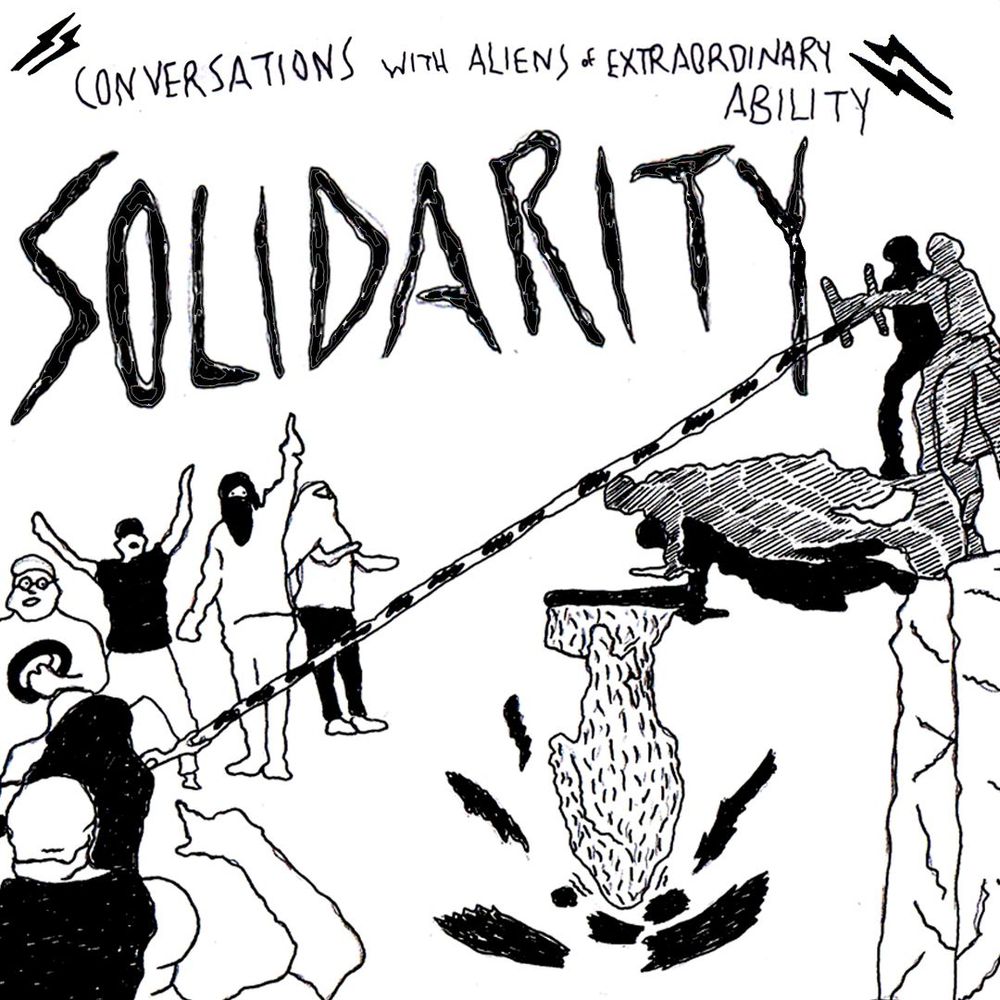 CONVERSATIONS WITH ALIENS of EXTRAORDINARY
ABILITY
SOLIDARITY